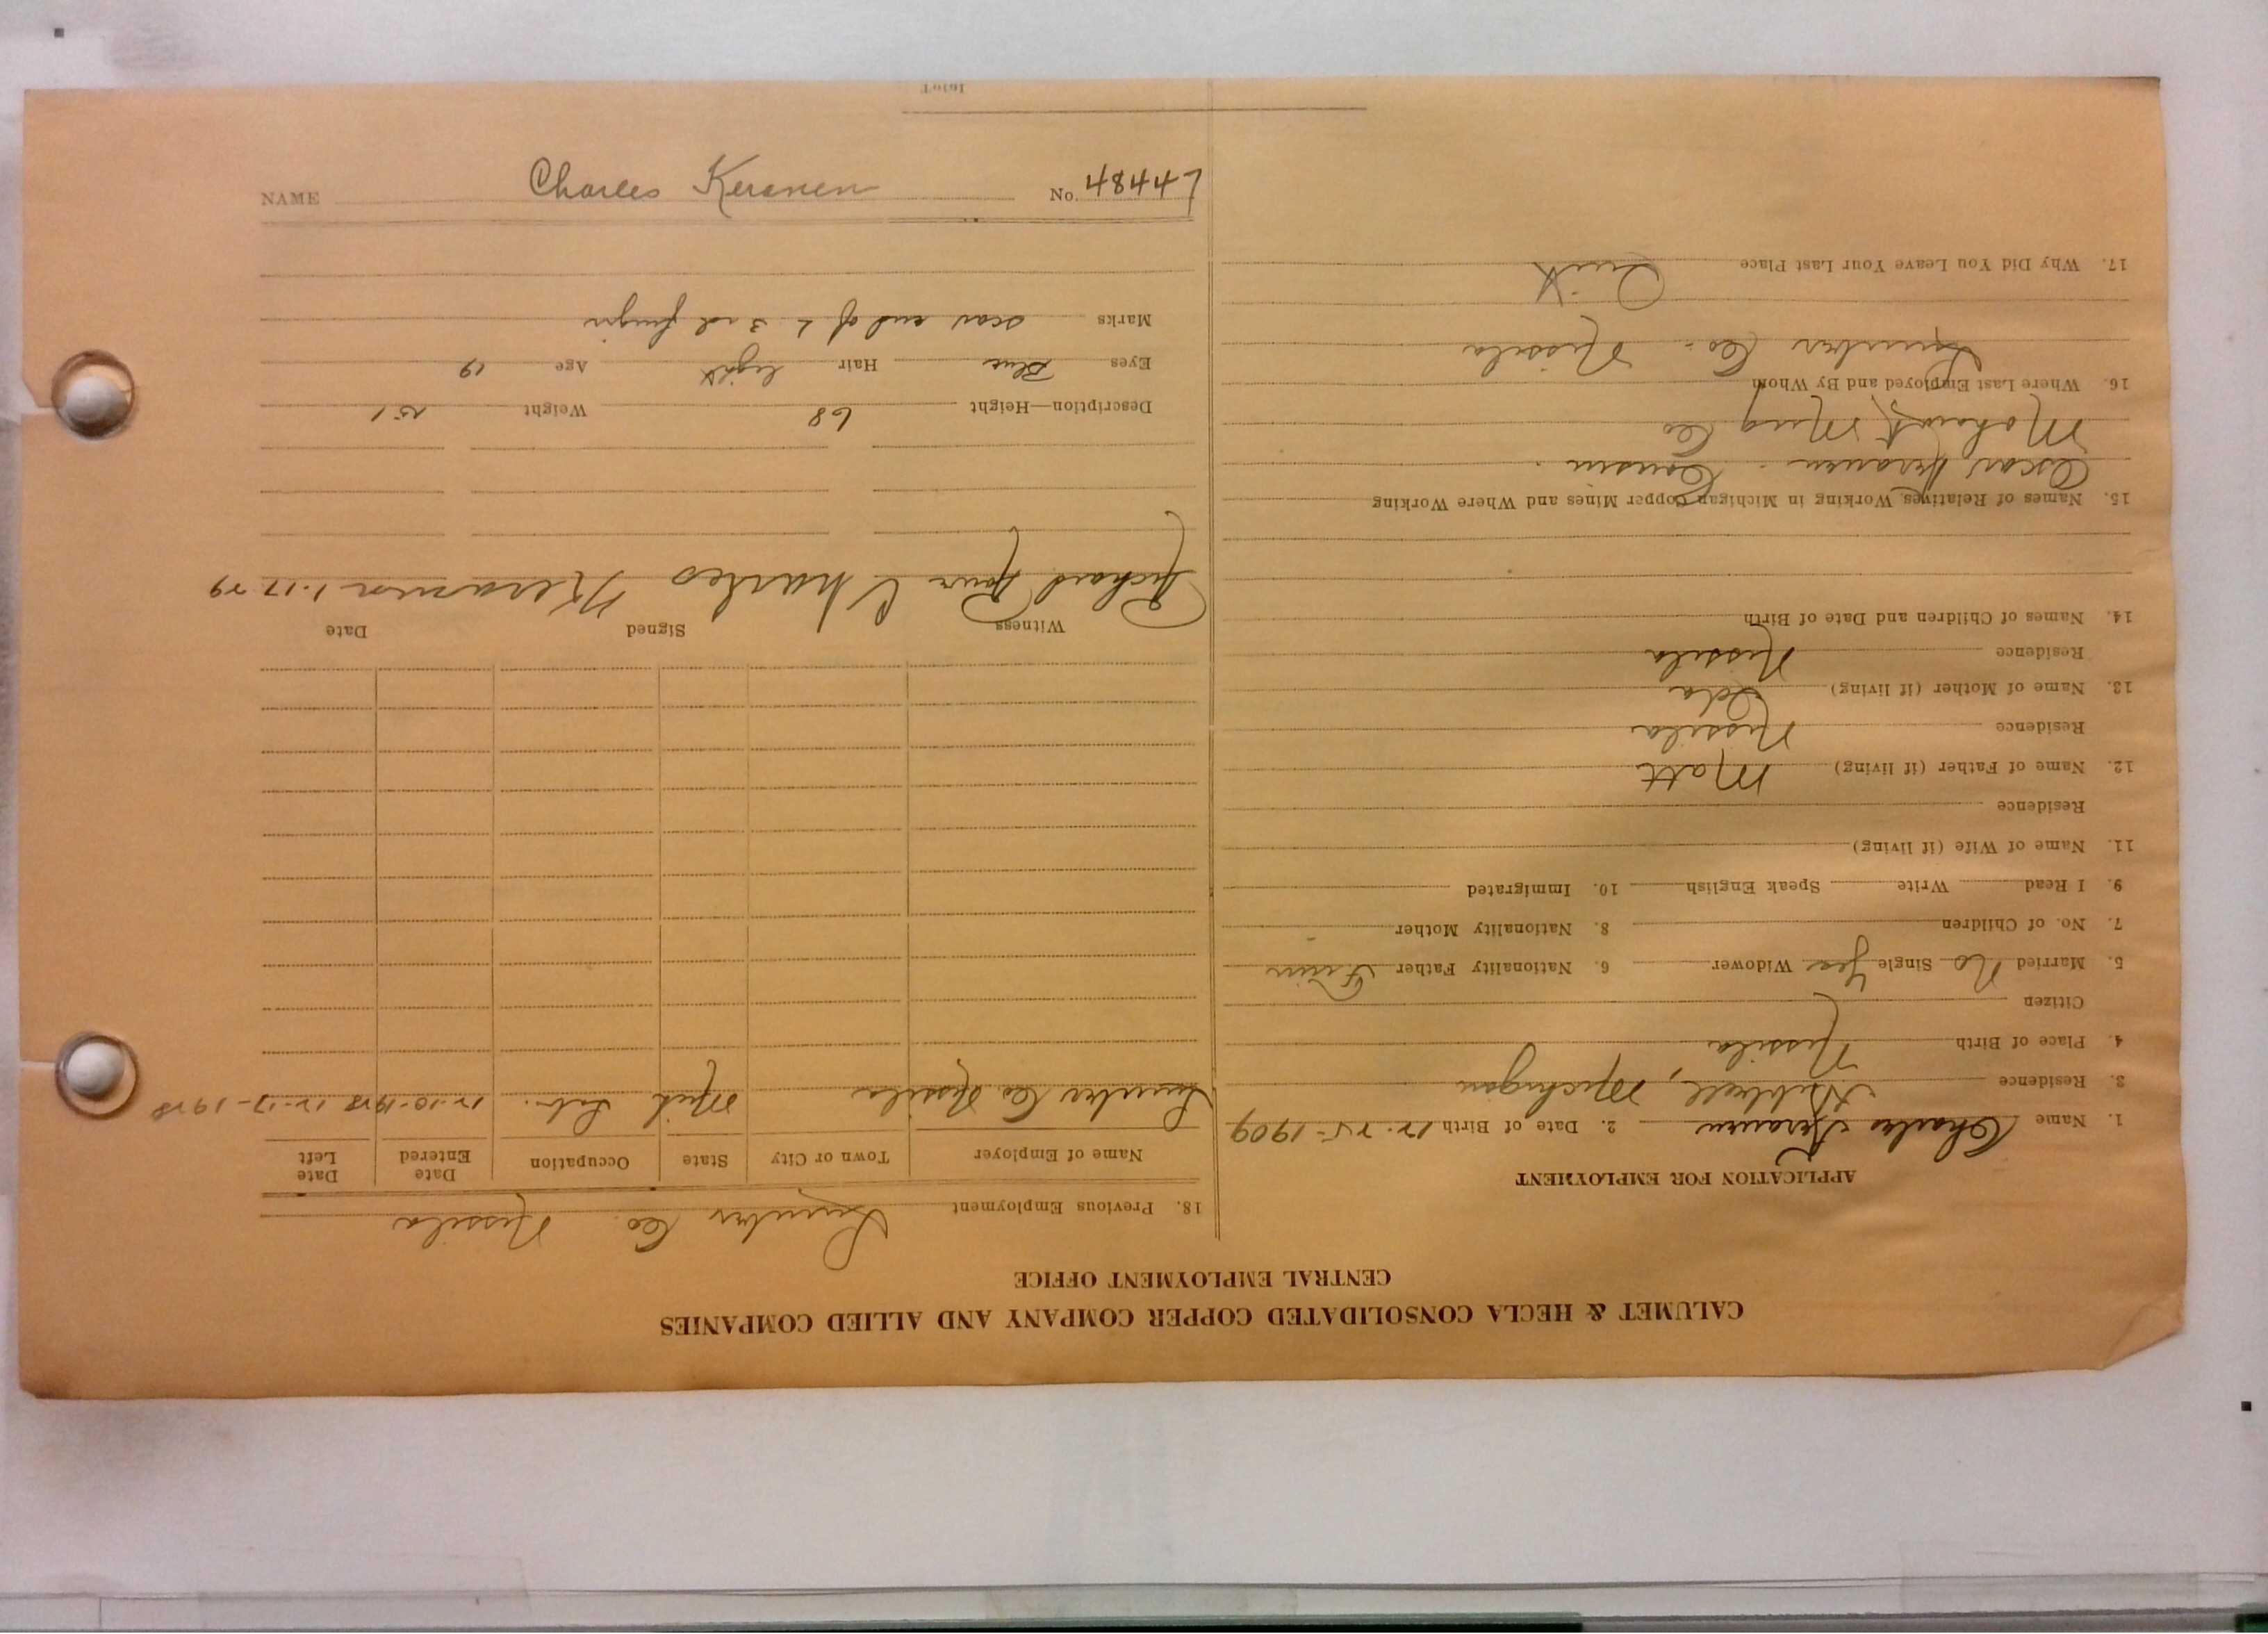 CALUMET & HECLA CONSOLIDATED COPPER COMPANY AND ALLIED COMPANIES
CENTRAL EMPLOYMENT OFFICE
APPLICATION FOR EMPLOYMENT
1. Name Charles Keranen 2. Date of Birth 12-25-1909
3. Residence Hubbell, Michigan
4. Place of Birth Nissila
Citizen
5. Married No Single Yes Widower 6. Nationality Father Finn
7. No. of Children 8. Nationality Mother
9. I Read Write Speak English 10. Immigrated
11. Name of Wife (if living)
Residence
12. Name of Father (if living) Matt
Residence Nissila
13. Name of Mother (if living) Ida
Residence Nissila
14. Names of Children and Date of Birth
15. Names of Relatives Working in Michigan Copper Mines and Where Working
Oscar Keranen - Cousin.
Mohawk Mng Co
16. Where Last Employed and By Whom
Lumber Co. Nissila
17. Why Did You Leave Your Last Place Quit
18. Previous Employment Lumber Co. Nissila
Name of Employer Town or City State Occupation Date Entered Date Left
Lumber Co Nissila Mich Lab. 12-10-1928 12-17-1928
Witness Signed Date
Richard Charles Keranen 1-17-29
Description—Height 68 Weight 151
Eyes Blue Hair light Age 19
Marks scar end of L 3rd finger
NAME Charles Keranen No. 4844